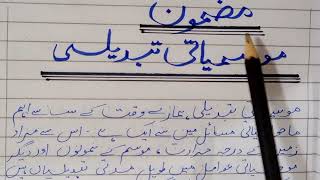 مضمون
موسمیاتی تبدیلی
موسمیاتی تبدیلی ہمارے وقت کے سب سے اہم
ماحولیاتی مسائل میں سے ایک ہے۔ اس سے مراد
زمین کے درجہ حرارت، موسم کے معمولوں اور دیگر
موسمیاتی عوامل میں طویل مدتی تبدیلیاں ہیں